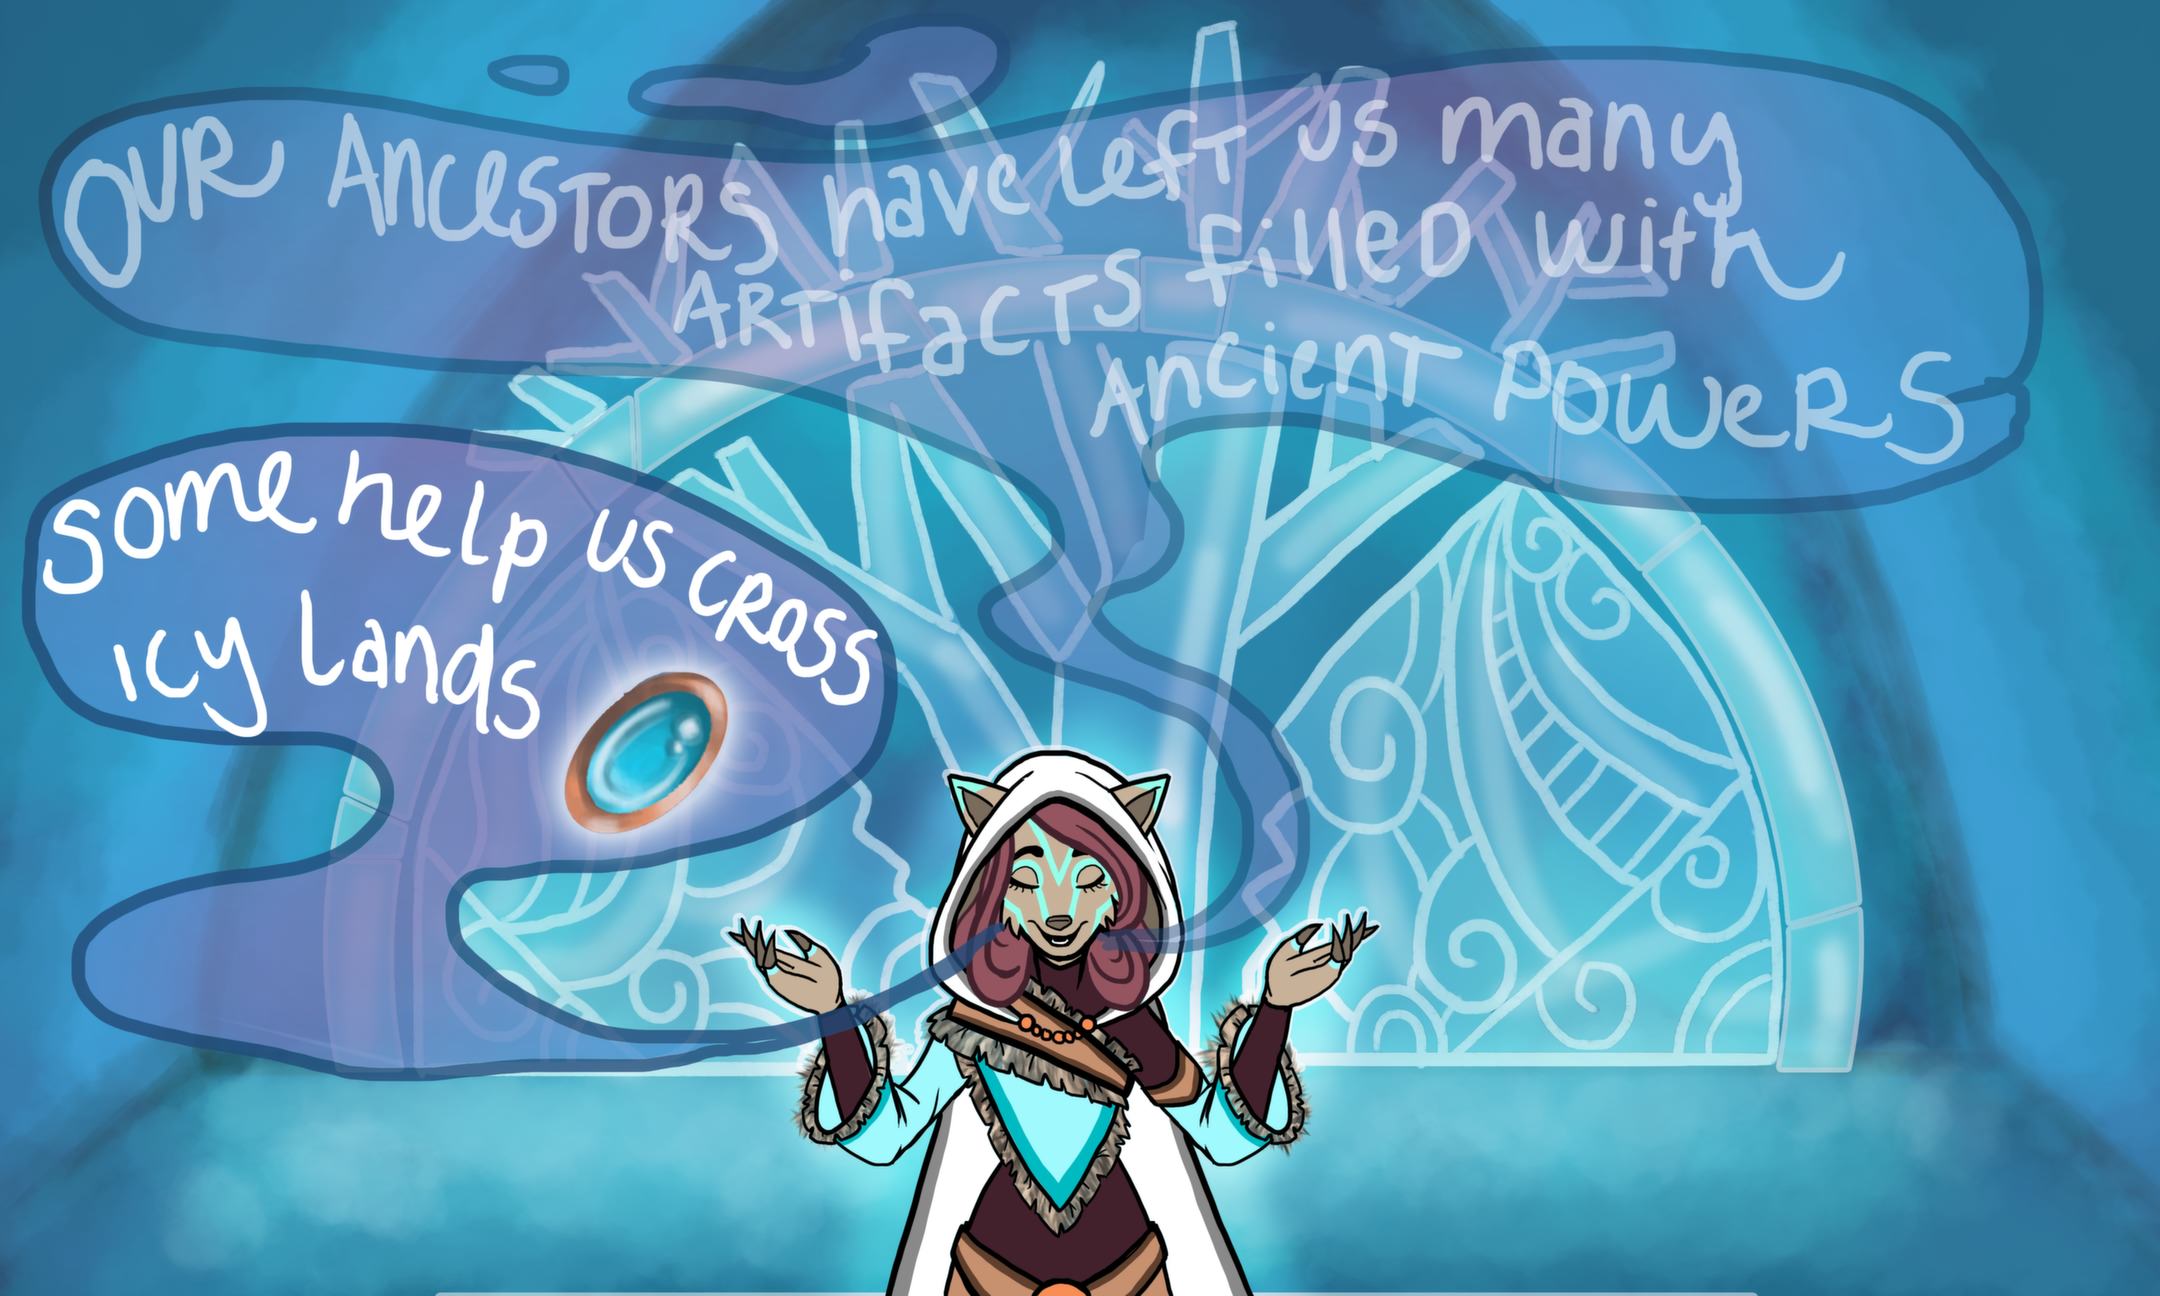 OUR Ancestors have left us many
Artifacts filled with
Ancient Powers
some help us cross
icy lands